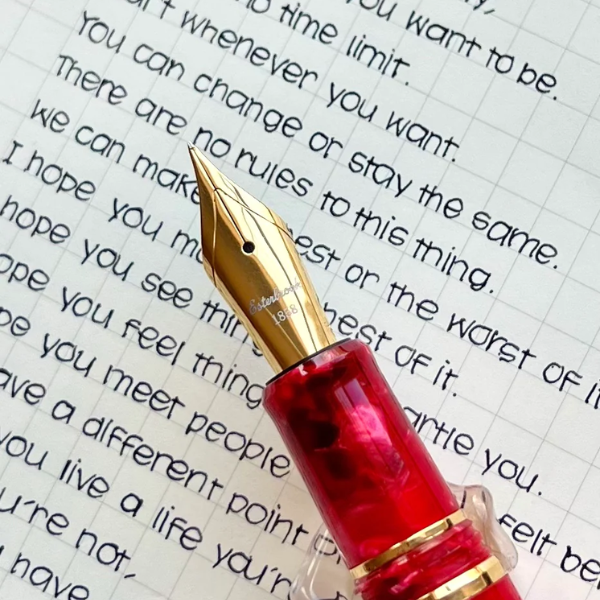 you want to be.
no time limit.
whenever you want.
You can change or stay the same.
There are no rules to this thing.
We can make est or the worst of it
I hope you m est of it.
hope you see thin
ope you feel thing artle you.
pe you meet people felt be
ave a different point
you live a life you'r
u're not,
have
Esterbrook
1858